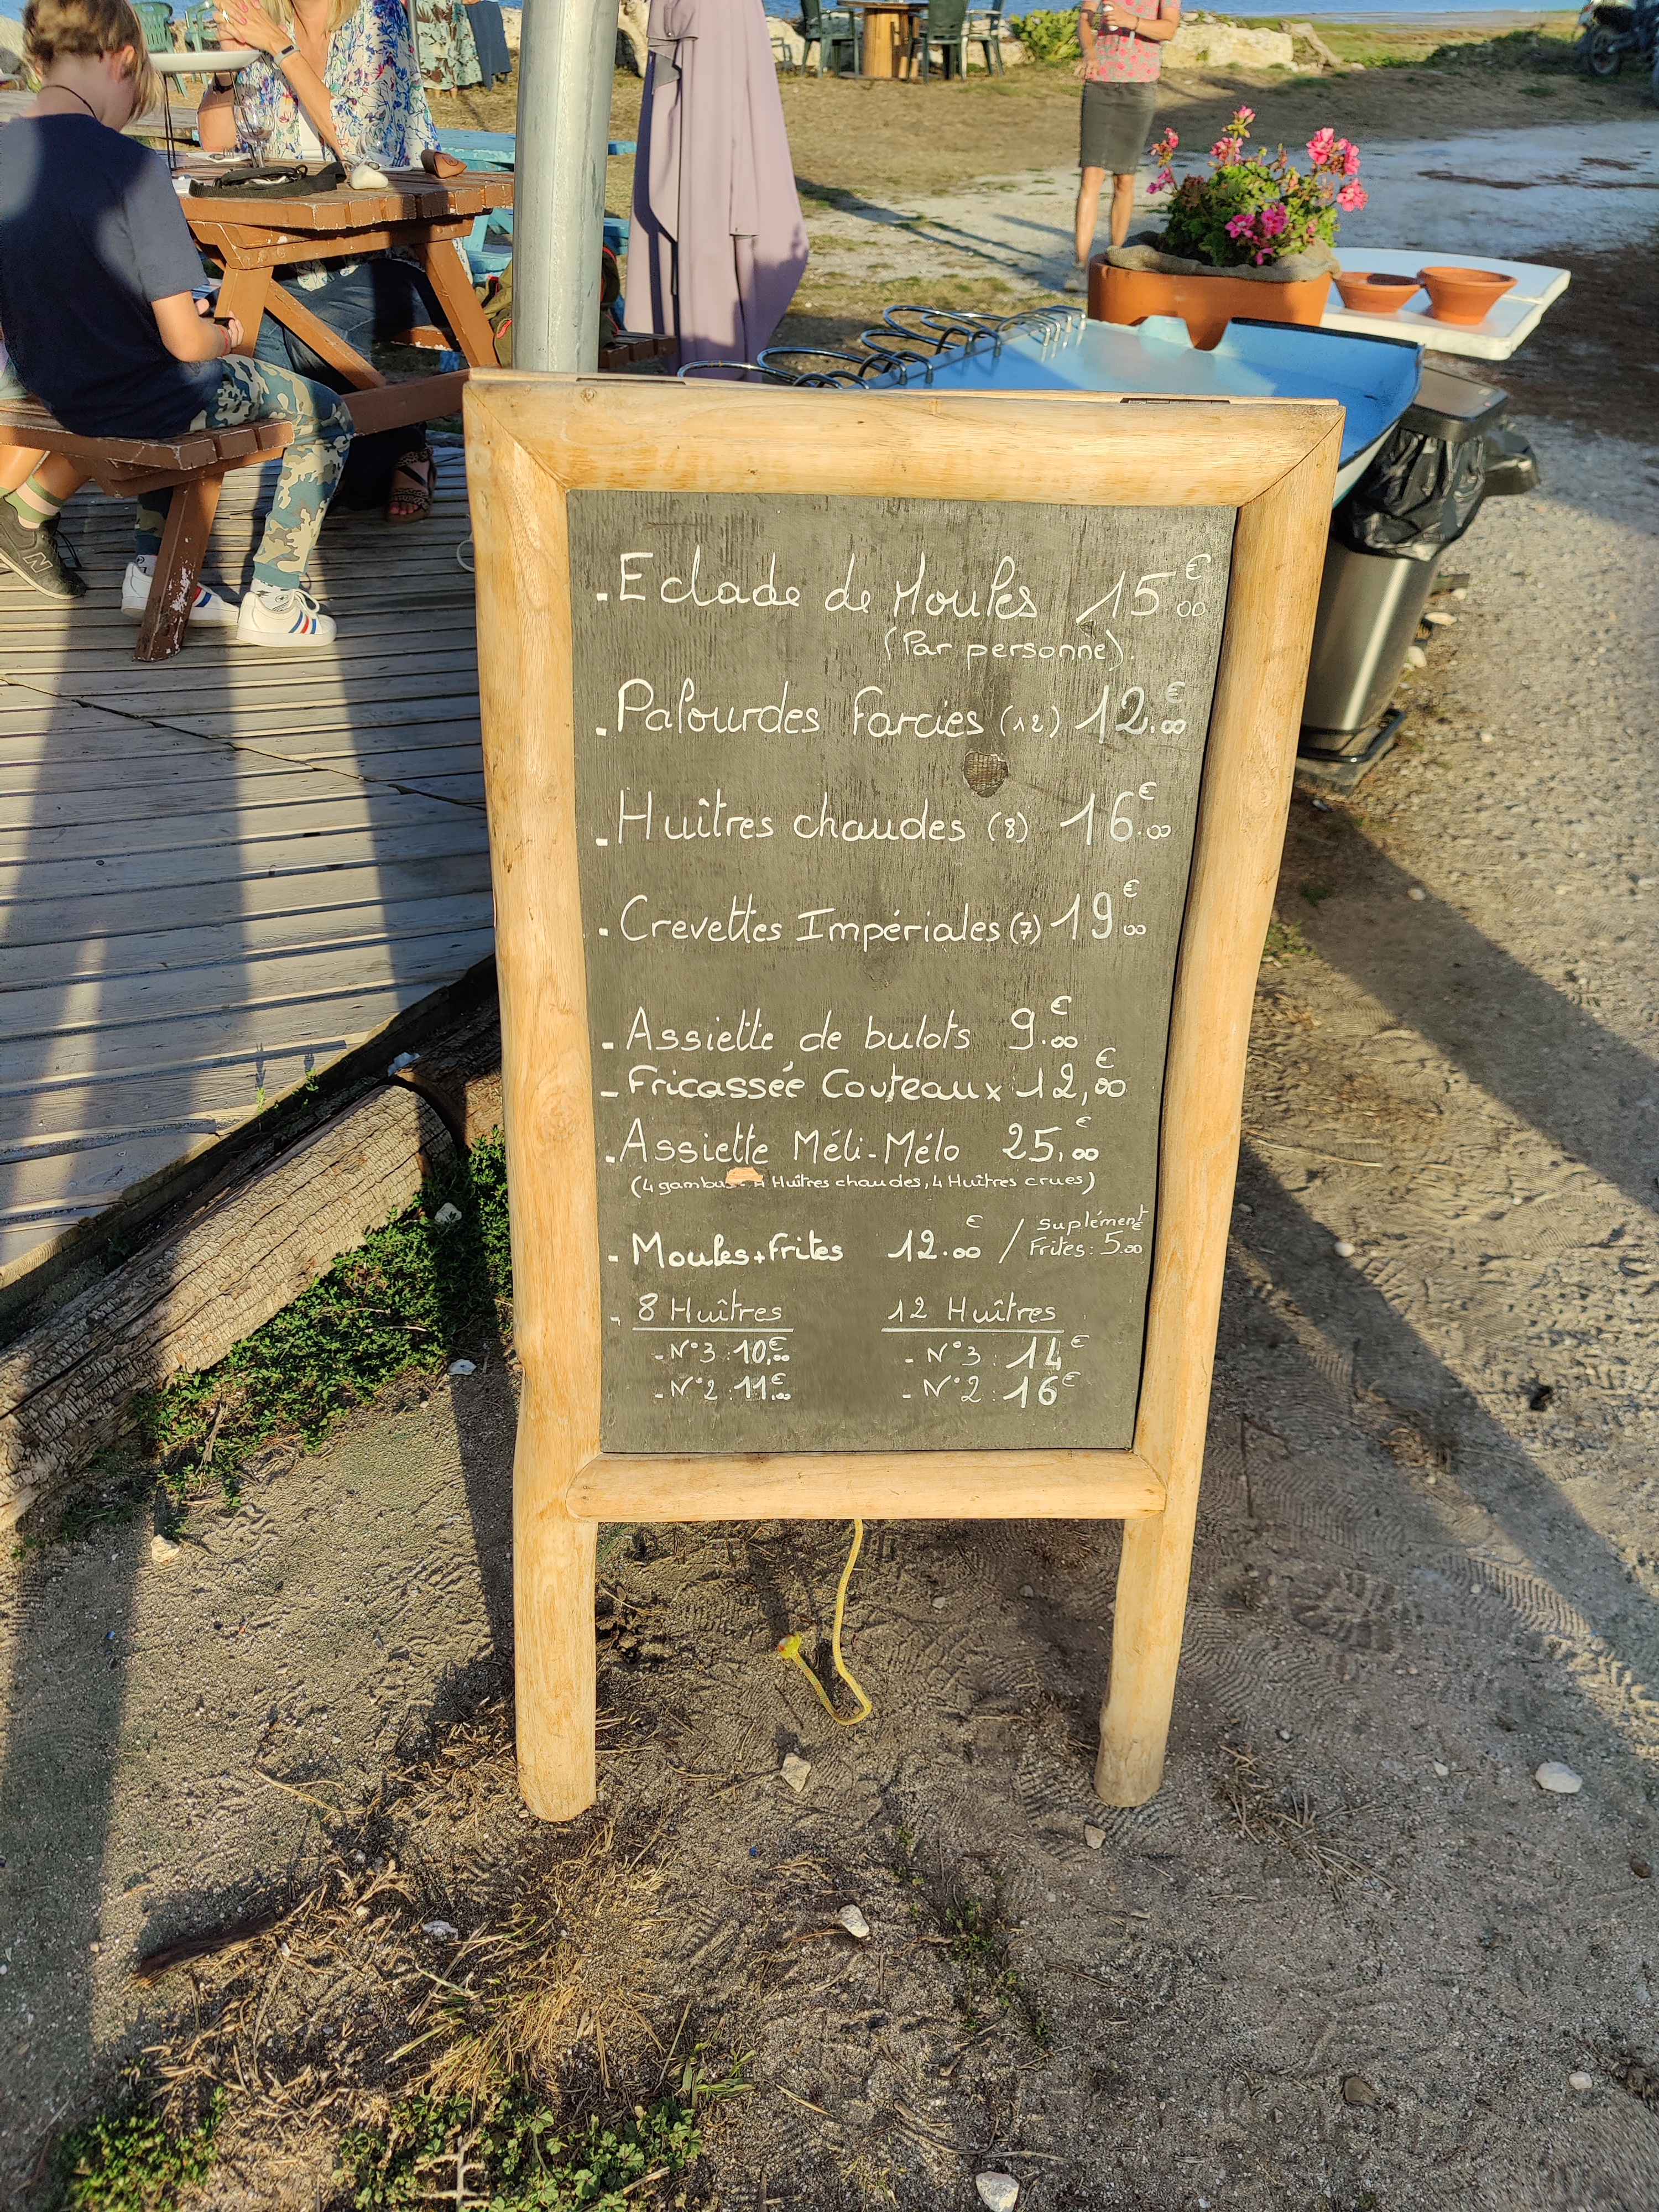 . Eclade de Moules 15.00€
(Par personne).
. Palourdes Farcies (12) 12.00€
. Huîtres chaudes (8) 16.00€
. Crevettes Impériales (7) 19.00€
- Assiette de bulots 9.00€
- Fricassée Couteaux 12,00€
. Assiette Méli-Mélo 25,00€
(4 gambas Huîtres chaudes, 4 Huîtres crues)
- Moules + Frites 12.00€ / Suplément
Frites: 5.00€
- 8 Huîtres 12 Huîtres
- N°3 : 10,00€ - N°3 : 14€
- N°2 : 11,00€ - N°2 : 16€